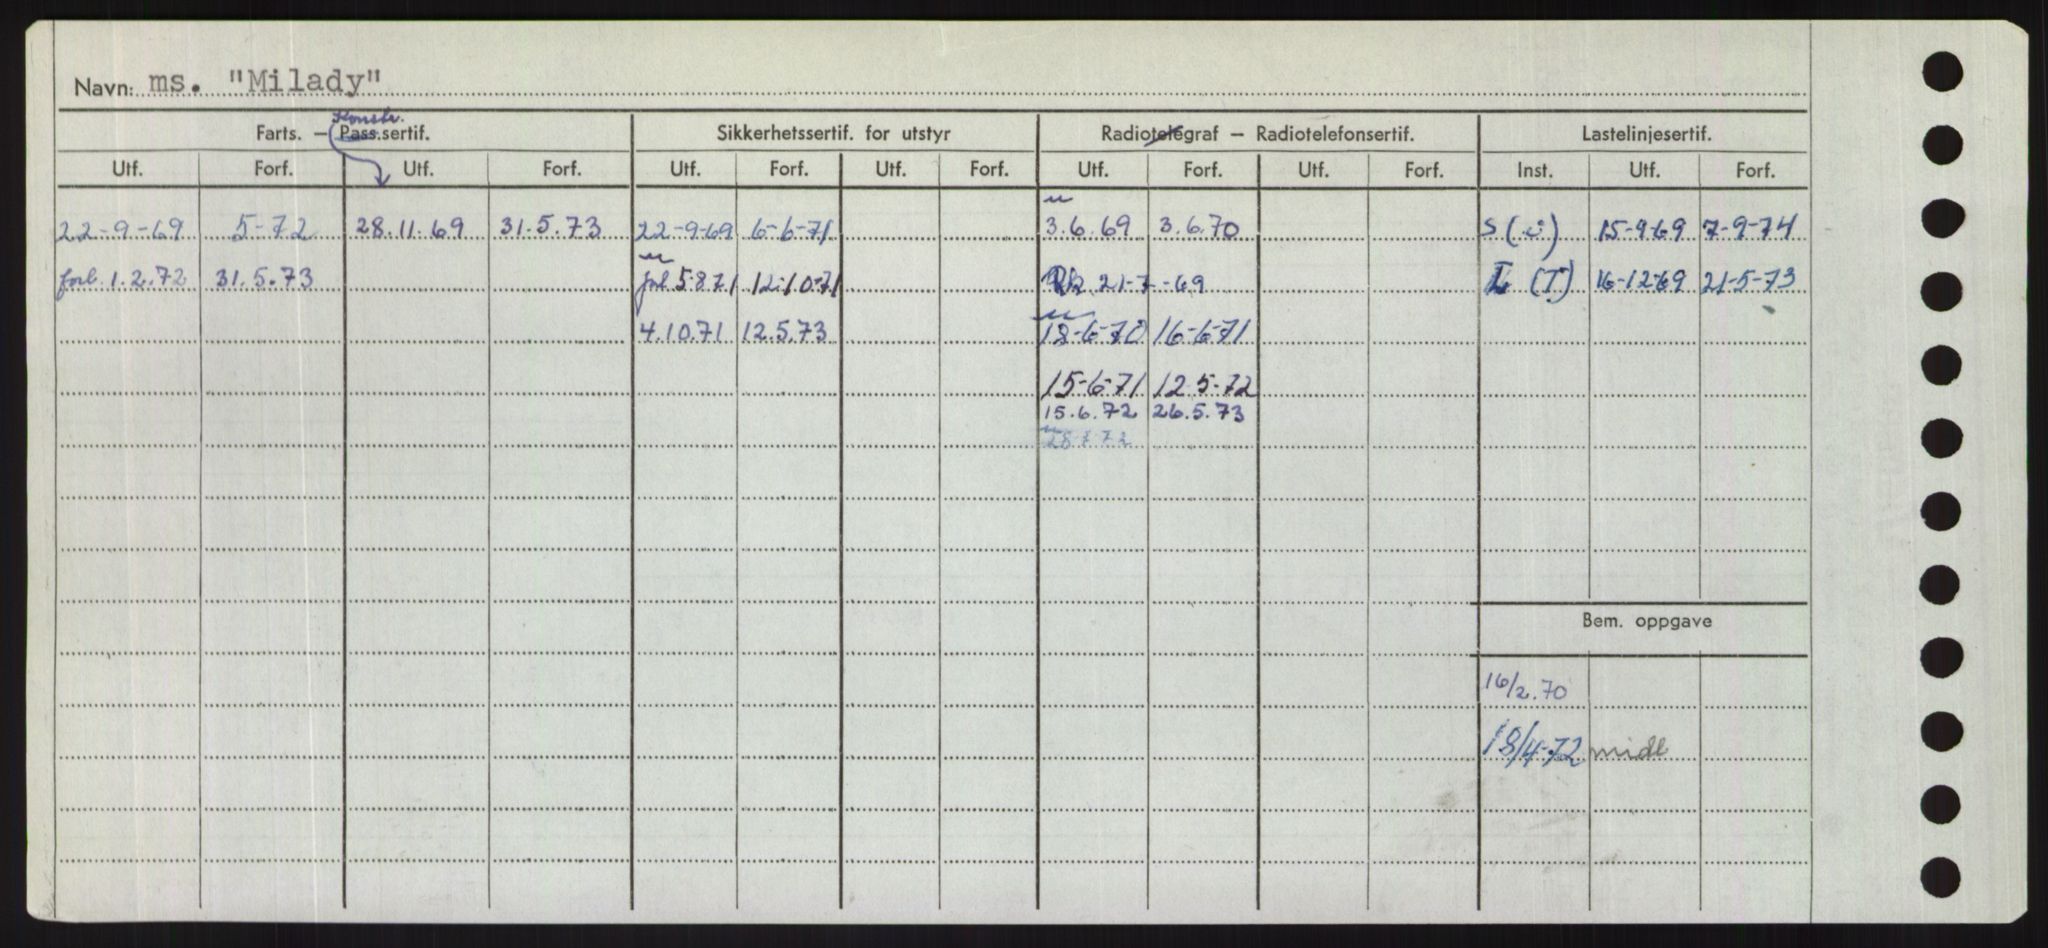 Navn: ms. "Milady"
Konstr.
Farts. – Pass.sertif. Sikkerhetssertif. for utstyr Radiotelegraf – Radiotelefonsertif. Lastelinjesertif.
Utf. Forf. Utf. Forf. Utf. Forf. Utf. Forf. Utf. Forf. Utf. Forf. Inst. Utf. Forf.
22-9-69 5-72 28.11.69 31.5.73 22-9-69 6-6-71 3.6.69 3.6.70 S (i) 15-9-69 7-9-74
forl. 1.2.72 31.5.73 forl 5.8.71 12-10-71 21-7-69 L (T) 16-12-69 21-5-73
4.10.71 12.5.73 18-6-70 16-6-71
15-6-71 12.5-72
15.6.72 26.5.73
28.7.72
Bem. oppgave
16/2.70
18/4-72 midl